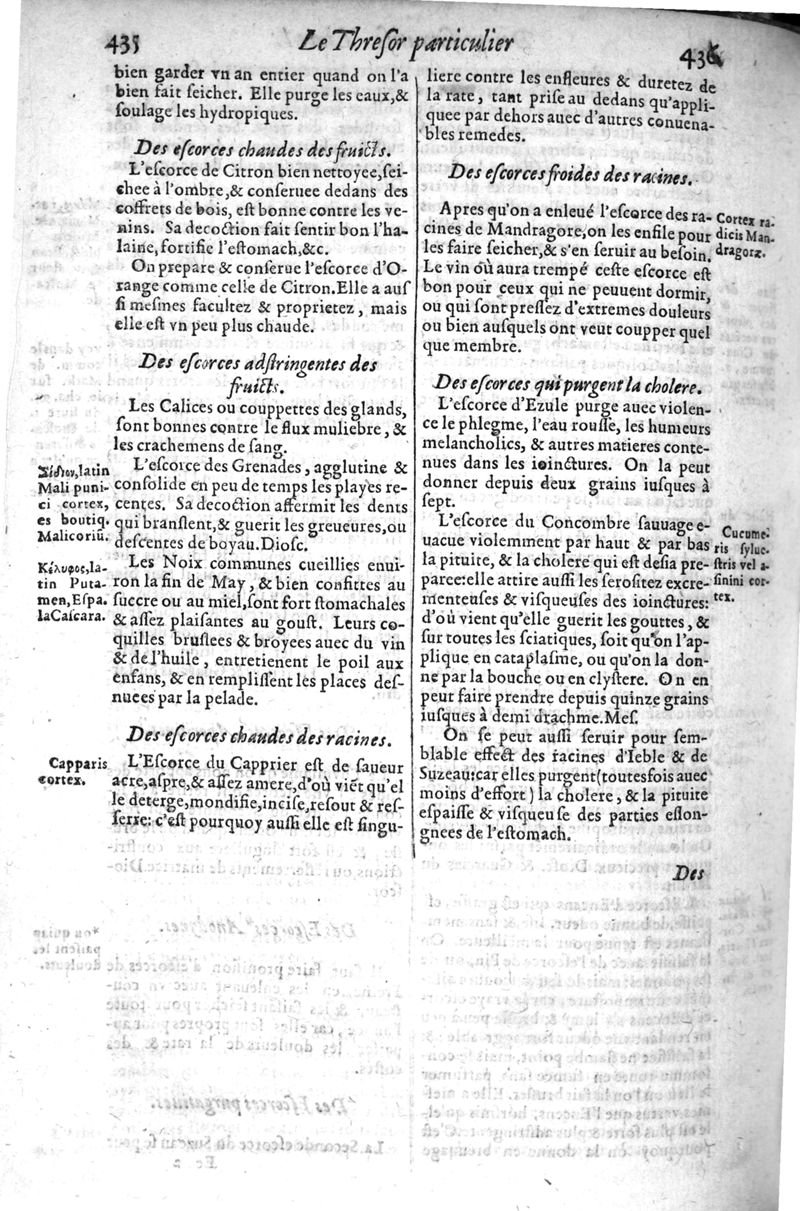 435
Le Thresor particulier
436
bien garder vn an entier quand on l'a
bien fait seicher. Elle purge les eaux,&
soulage les hydropiques.
Des escorces chaudes des fruicts.
L'escorce de Citron bien nettoyee,sei-
chee à l'ombre,& conseruee dedans des
coffrets de bois, est bonne contre les ve-
nins. Sa decoction fait sentir bon l'ha-
laine, fortifie l'estomach,&c.
On prepare & conserue l'escorce d'O-
range comme celle de Citron.Elle a aus
si mesmes facultez & proprietez, mais
elle est vn peu plus chaude.
Des escorces adstringentes des
fruicts.
Les Calices ou couppettes des glands,
sont bonnes contre le flux muliebre, &
les crachemens de sang.
L'escorce des Grenades, agglutine &
consolide en peu de temps les playes re-
centes. Sa decoction affermit les dents
qui branslent,& guerit les greueures,ou
descentes de boyau.Diosc.
Σίδιον,latin
Mali puni-
ci cortex,
es boutiq.
Malicoriũ.
Les Noix communes cueillies enui-
ron la fin de May, & bien confittes au
succre ou au miel,sont fort stomachales
& assez plaisantes au goust. Leurs co-
quilles bruslees & broyees auec du vin
& de l'huile, entretienent le poil aux
enfans, & en remplissent les places des-
nuees par la pelade.
Κέλυφος,la-
tin Puta-
men,Espa.
la Cascara.
Des escorces chaudes des racines.
L'Escorce du Capprier est de saueur
acre,aspre,& assez amere,d'où viẽt qu'el
le deterge,mondifie,incise,resout & res-
serre: c'est pourquoy aussi elle est singu-
Capparis
cortex.
liere contre les enfleures & duretez de
la rate, tant prise au dedans qu'appli-
quee par dehors auec d'autres conuena-
bles remedes.
Des escorces froides des racines.
Apres qu'on a enleué l'escorce des ra-
cines de Mandragore,on les enfile pour
les faire seicher,& s'en seruir au besoin.
Le vin où aura trempé ceste escorce est
bon pour ceux qui ne peuuent dormir,
ou qui sont pressez d'extremes douleurs
ou bien ausquels ont veut coupper quel
que membre.
Cortex ra-
dicis Man-
dragoræ.
Des escorces qui purgent la cholere.
L'escorce d'Ezule purge auec violen-
ce le phlegme, l'eau rousse, les humeurs
melancholics, & autres matieres conte-
nues dans les ioinctures. On la peut
donner depuis deux grains iusques à
sept.
L'escorce du Concombre sauuage e-
uacue violemment par haut & par bas
la pituite, & la cholere qui est desia pre-
paree:elle attire aussi les serositez excre-
menteuses & visqueuses des ioinctures:
d'où vient qu'elle guerit les gouttes, &
sur toutes les sciatiques, soit qu'on l'ap-
plique en cataplasme, ou qu'on la don-
ne par la bouche ou en clystere. On en
peut faire prendre depuis quinze grains
iusques à demi drachme.Mes.
Cucume-
ris sylue-
stris vel a-
sinini cor-
tex.
On se peut aussi seruir pour sem-
blable effect des racines d'Ieble & de
Suzeau:car elles purgent(toutesfois auec
moins d'effort) la cholere, & la pituite
espaisse & visqueuse des parties eslon-
gnees de l'estomach.
Des